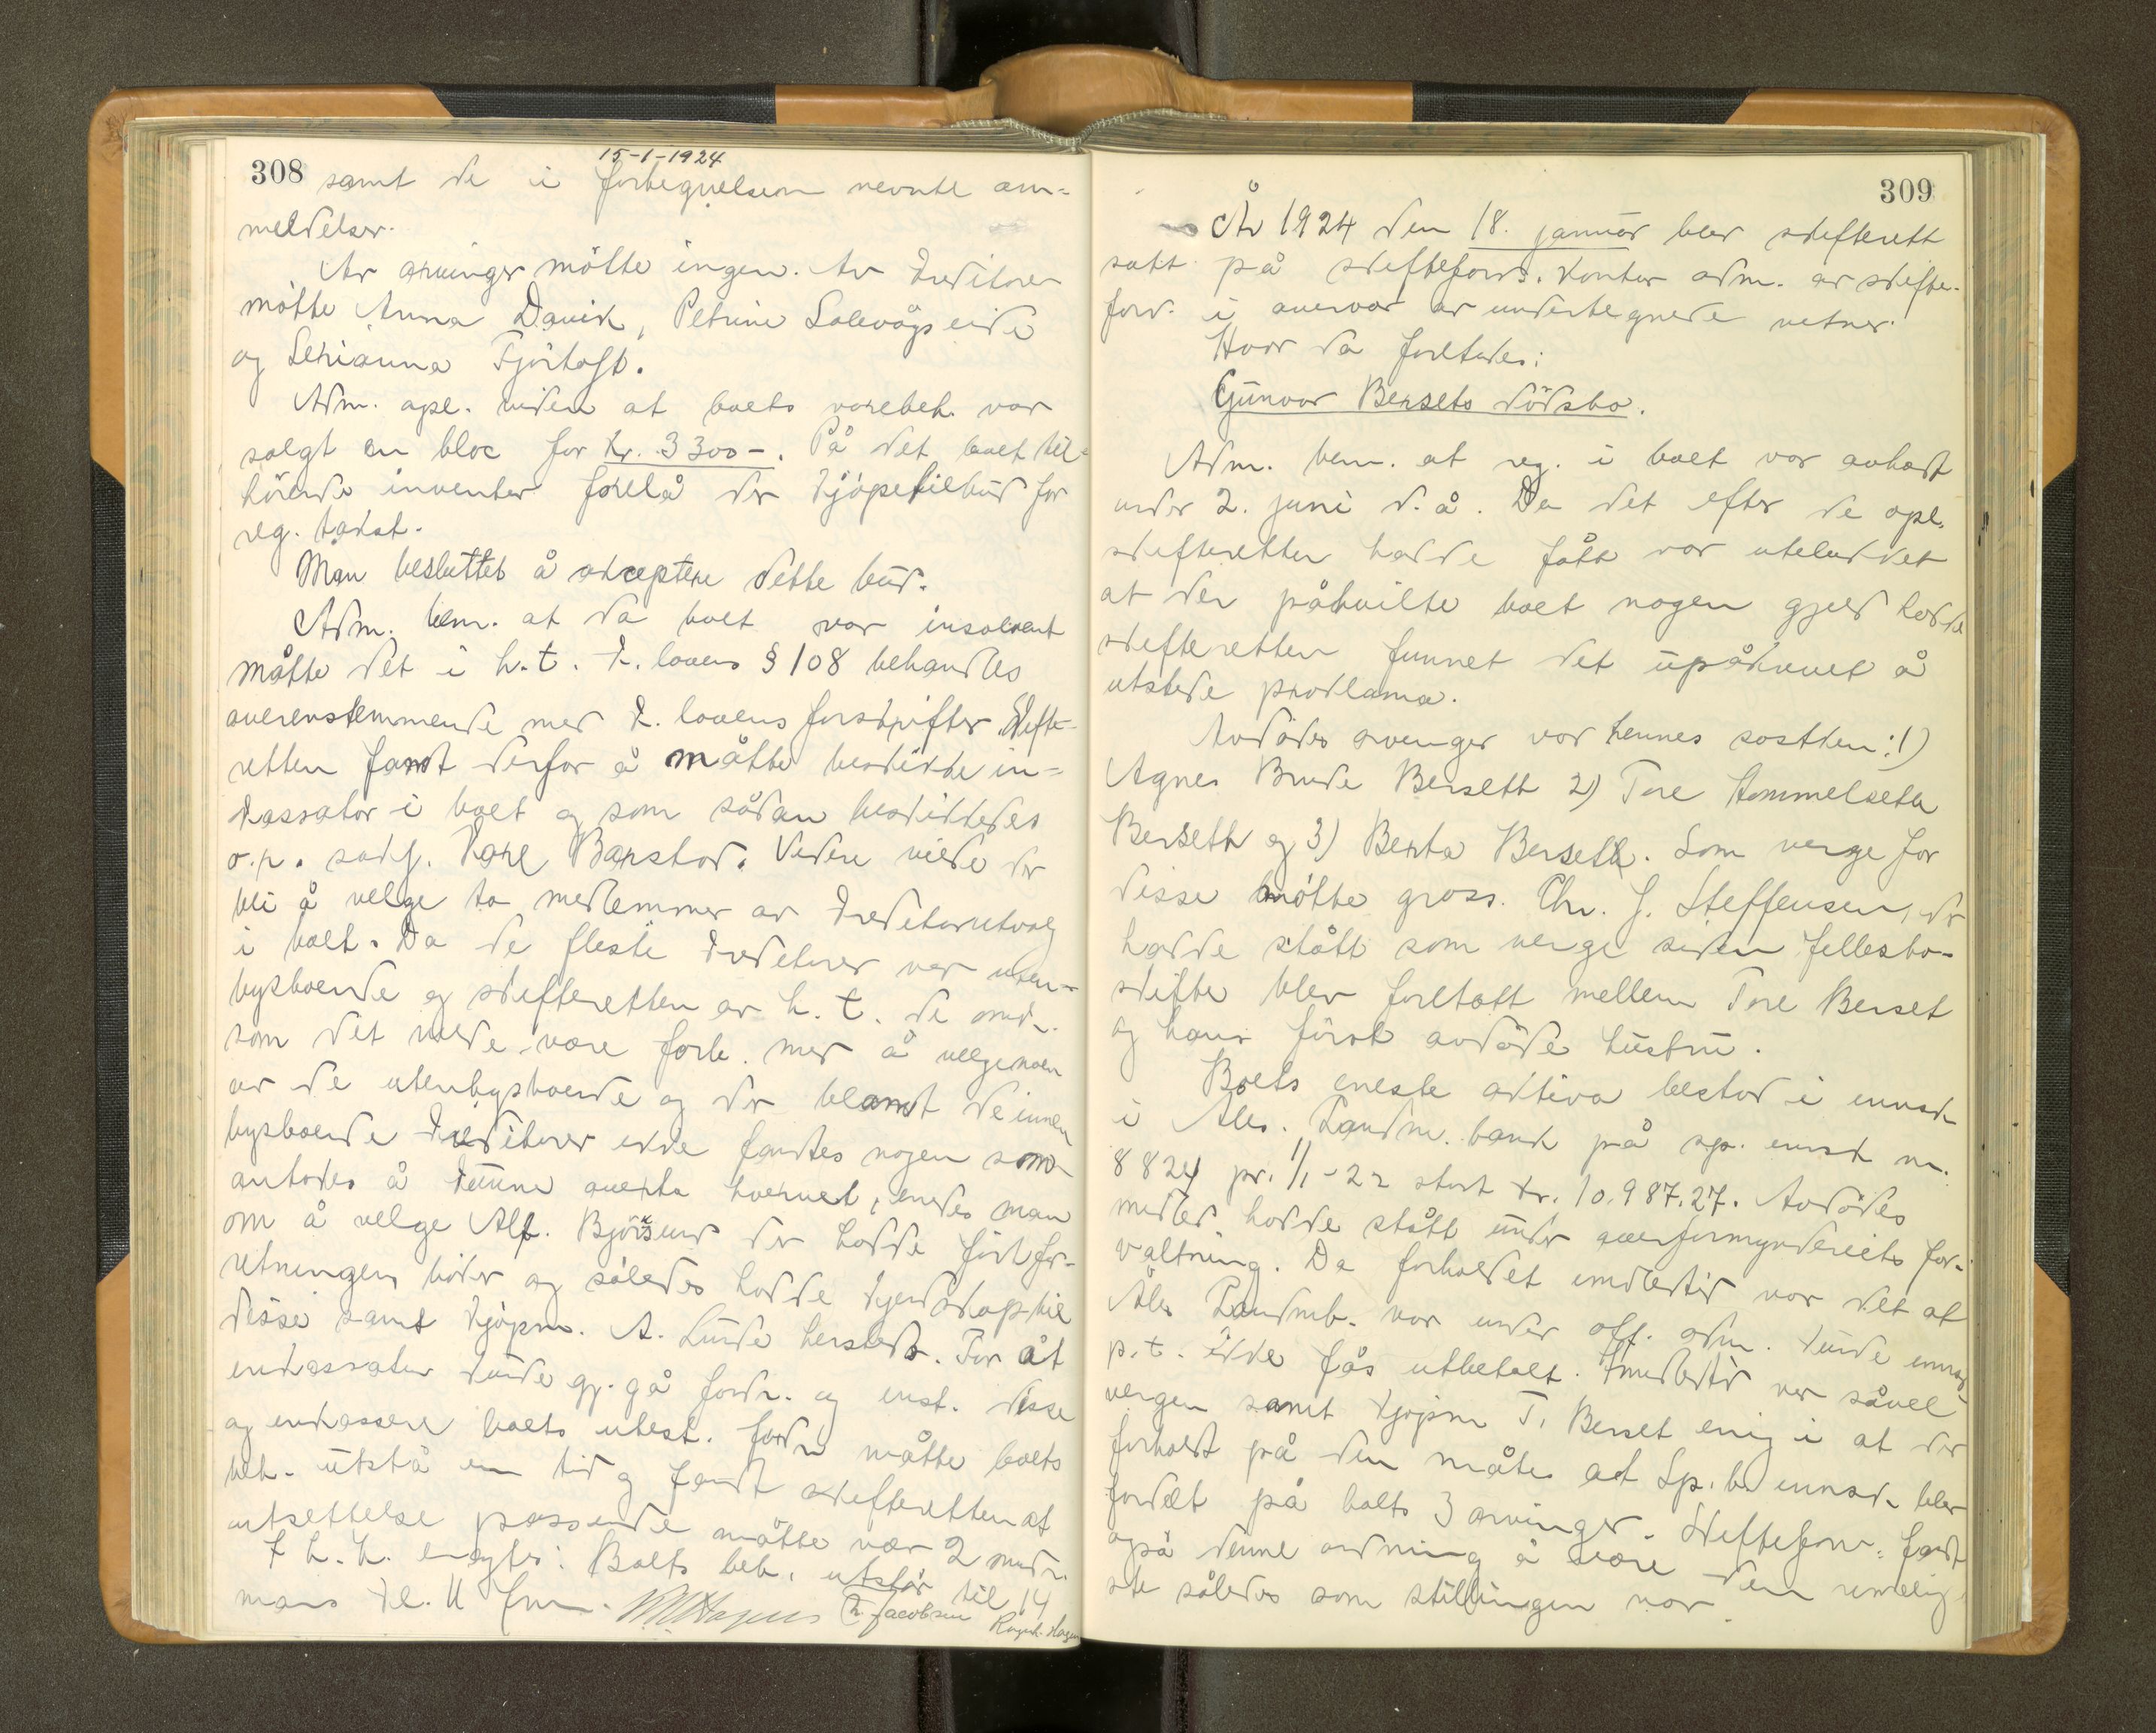 15-1-1924
308 samt de i fortegnelsen nevnte an-
meldelser.
Av arvinger møtte ingen. Av kreditorer
møtte Anna Davik, Petrine Solevågseide
og Serianna Fjørtoft.
Adm. opl. viden at boets varebeh. var
solgt en bloc for kr. 3300-. På det boet til-
hørende inventar forelå der kjøpetilbud for
reg. takst.
Man besluttet å akceptere dette bud.
Adm. bem. at da boet var insolvent
måtte det i h. t. k. lovens § 108 behandles
overensstemmende med k. lovens forskrifter. Skifte-
retten fandt derfor å måtte beskikke in-
kassator i boet og som sådan beskikkedes
o.r. sakf. Kåre Barstad. Videre vilde der
bli å velge to medlemmer av kreditorutvalg
i boet. Da de fleste kreditorer var uten-
bysboende og skifteretten av h. t. de omk.
som det vilde være forb. med å velge noen
av de utenbysboende og der blandt de innen
bysboende kreditorer ikke fandtes nogen som
antodes å kunne overta hvervet, enedes man
om å velge Alf. Bjørseund der hadde ført for-
retningens bøker og således hadde kjendskap til
disse samt kjøpm. A. Lunde hersteds. For at
inkassator kunde gj. gå fordr. og inst. disse
og inkassere boets utest. fordr. måtte boets
beh. utstå en tid og fandt skifteretten at
utsettelse passende måtte vær 2 mndr.
T h. h. eragtes: Boets beh. utstår til 14
mars kl. 11 fm. Hagen Th. Jacobsen Ragnh. Hagen
309
År 1924 den 18. januar blev skifterett
satt på skifteforv. kontor adm. av skifte-
forv. i overvær av undertegnede vitner.
Hvor da foretokes:
Gunvor Bersets dødsbo.
Adm. bem. at reg. i boet var avholdt
under 2. juni d. å. Da det efter de opl.
skifteretten hadde fått var utelukket
at der påhvilte boet nogen gjeld hadde
skifteretten funnet det upåkrevet å
utstede proklama.
Avdødes arvinger var hennes søsken: 1)
Agnes Brude Bersett 2) Tore Hammelseth
Berseth og 3) Berta Berseth. Som verge for
disse møtte gross. Chr. J. Steffensen, der
hadde stått som verge siden fellesbo-
skifte blev foretatt mellem Tore Berset
og hans først avdøde hustru.
Boets eneste aktiva bestod i innsk.
i Ales. Landm. bank på sp. innsk nr.
8824 pr. 1/1-22 stort kr. 10.987,27. Avdødes
midler hadde stått under overformynderiets for-
valtning. Da forholdet imidlertid var det at
Åles Landmb. var under off. adm. kunde innsk.
p. t. ikke fås utbetalt. Imidlertid var såvel
vergen samt kjøpm T. Berset enig i at der
forholdt på den måte at Sp. b. innsk. blev
fordelt på boets 3 arvinger. Skifteforv. fandt
også denne ordning å være den rimelig-
ste således som stillingen var